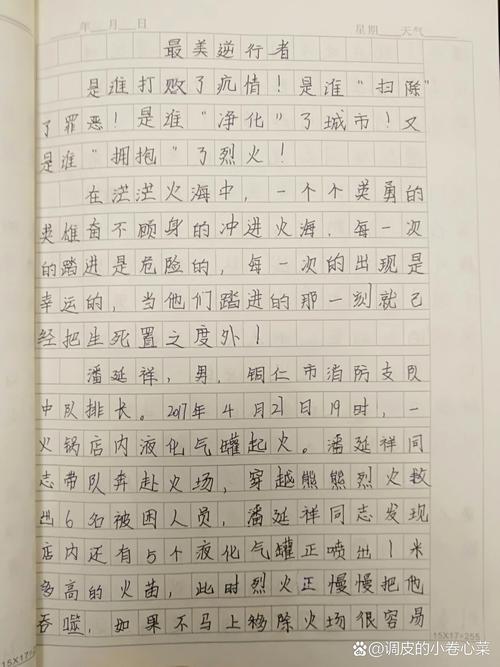 年 月 日 星期 天气
最美逆行者
是谁打败了疫情！是谁“扫除”
了罪恶！是谁“净化”了城市！又
是谁“拥抱”了烈火！
在茫茫火海中，一个个英勇的
英雄奋不顾身的冲进火海，每一次
的踏进是危险的，每一次的出现是
幸运的，当他们踏进的那一刻就已
经把生死置之度外！
潘延祥，男，铜仁市消防支队
中队排长。2017年4月21日19时，一
火锅店内液化气罐起火。潘延祥同
志带队奔赴火场，穿越熊熊烈火救
出6名被困人员，潘延祥同志发现
店内还有5个液化气罐正喷出1米
多高的火苗，此时烈火正慢慢把他
吞噬，如果不马上移除火场很容易
15X17=255
15X17=255
头条 @调皮的小卷心菜